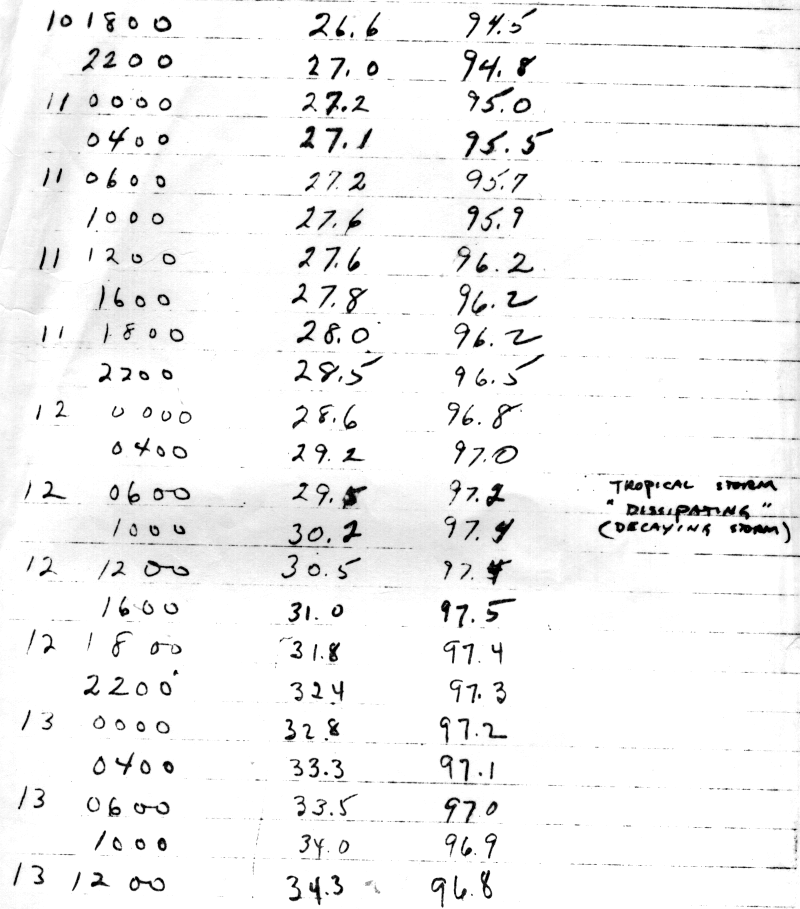 10 1800 26.6 94.5
2200 27.0 94.8
11 0000 27.2 95.0
0400 27.1 95.5
11 0600 27.2 95.7
1000 27.6 95.9
11 1200 27.6 96.2
1600 27.8 96.2
11 1800 28.0 96.2
2200 28.5 96.5
12 0000 28.6 96.8
0400 29.2 97.0
12 0600 29.5 97.2 TROPICAL STORM
"DISSIPATING"
1000 30.2 97.4 (DECAYING STORM)
12 1200 30.5 97.4
1600 31.0 97.5
12 1800 31.8 97.4
2200 324 97.3
13 0000 32.8 97.2
0400 33.3 97.1
13 0600 33.5 970
1000 34.0 96.9
13 1200 34.3 96.8